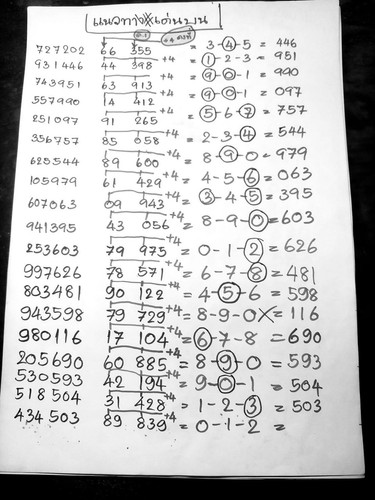 แนวทางXเด่นบน
727202 66 355 = 3-4-5 = 446
931446 44 398 +4 = 1-2-3 = 951
743951 63 913 +4 = 9-0-1 = 990
557990 14 412 +4 = 9-0-1 = 097
251097 91 265 +4 = 5-6-7 = 757
356757 85 058 +4 = 2-3-4 = 544
625544 89 600 +4 = 8-9-0 = 979
105979 61 429 +4 = 4-5-6 = 063
607063 09 943 +4 = 3-4-5 = 395
941395 43 056 +4 = 8-9-0 = 603
253603 79 975 +4 = 0-1-2 = 626
997626 78 571 +4 = 6-7-8 = 481
803481 90 122 +4 = 4-5-6 = 598
943598 79 729 +4 = 8-9-0X = 116
980116 17 104 +4 = 6-7-8 = 690
205690 60 885 +4 = 8-9-0 = 593
530593 42 194 +4 = 9-0-1 = 504
518504 31 428 +4 = 1-2-3 = 503
434503 89 839 +4 = 0-1-2 =